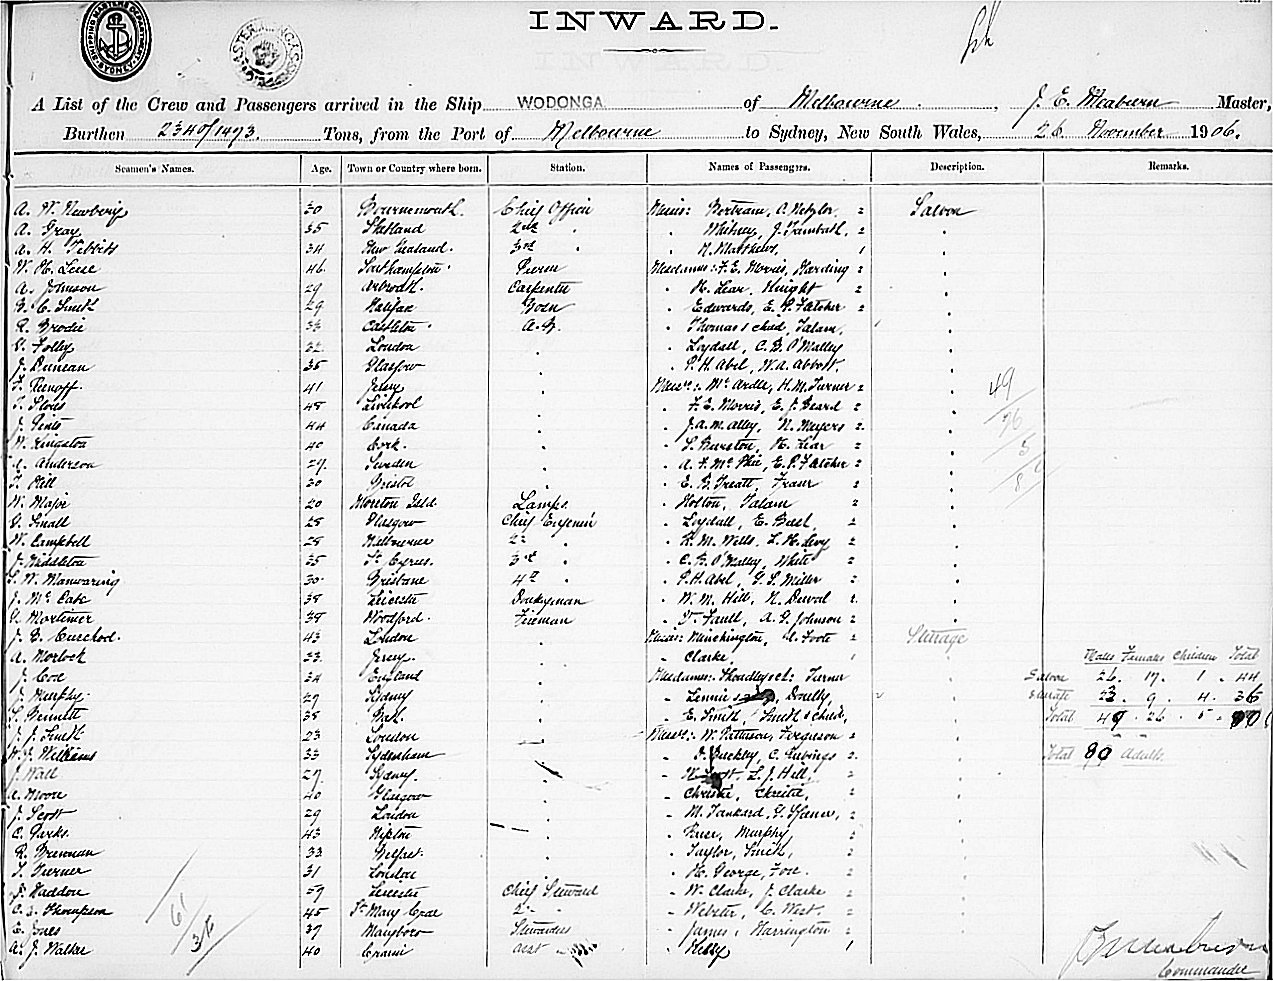 INWARD.
SHIPPING MASTERS DEPARTMENT SYDNEY
A List of the Crew and Passengers arrived in the Ship WODONGA of Melbourne, J. E. Meaburn Master,
Burthen 2340/1473. Tons, from the Port of Melbourne to Sydney, New South Wales, 26 November 1906.
Seamen's Names. Age. Town or Country where born. Station. Names of Passengers. Description. Remarks.
A. W. Newberry 30 Bournemouth. Chief Officer Misses: Bertram, A. 2 Saloon
A. Gray 35 Shetland 2nd " " Whitney, J. 2 "
A. H. Tibbits 34 New Zealand. 3rd " " N. Matthews, 1 "
W. H. 46 Southampton. Mesdames: F. E. Morris, Harding 2 "
A. Johnson 29 Arbroath. Carpenter " H. Lear, Knight 2 "
C. Smith 29 Halifax Bosn " Edwards, E. P. Fatcher 2 "
R. Brodie 36 Castleton. A.B. " Thomas & child, Talam, "
Folley 32 London " " Loydall, C. B. O'Malley "
J. Duncan 35 Glasgow " " P. H. Abel, W. A. Abbott. "
41 Jersey " Messrs: McArdle, H. M. Turner 2 " 49
48 Liverpool " " F. E. Morris, E. J. Beard 2 " 26
J. 44 Canada " " J. A. M. Alley, N. Meyers 2 "
W. Kingston 40 Cork. " " S. Burston, H. Lear 2 " 5
A. Anderson 29 Sweden " " A. F. McPhee, E. P. Fatcher 2 "
T. Hill 30 Bristol " " E. B. Treatt, Fraser 2 "
W. Major 20 Moreton Lamps. " Holton, Talam 2 "
G. Small 28 Glasgow Chief Engineer " Loydall, E. Bash, 2 "
W. Campbell 28 Melbourne 2nd " " R. M. Wells, L. H. Levy 2 "
J. Middleton 25 St. Cyrus. 3rd " " C. B. O'Malley, White 2 "
S. W. Manwaring 30 Brisbane 4th " " P. H. Abel, G. S. Miller 2 "
J. McCabe 38 Leicester Donkeyman " W. M. Hill, N. Duval 2 "
G. Mortimer 38 Woodford. Fireman " Faull, A. G. Johnson 2 "
J. B. Curchod. 43 London " Misses: Minchington, A. Foote 2 Steerage
A. Morlock 33 Jersey. " " Clarke, 1 " Males Females Children Total
J. Coe 34 England " Mesdames: Turner " Saloon 26. 17. 1. 44
J. Murphy. 27 Sydney " " Lennie Donelly, " Steerage 23. 9. 4. 36
Bennett 38 " " E. Smith, Smith & child, " Total 49. 26. 5. 80
J. J. Smith 23 London " Messrs: W. Patterson, Ferguson 2 "
W. J. Williams 33 Sydenham " Buckley, C. 2 " Total 80 Adults.
J. Wall 27 Sydney. " " L. J. Hill, 2 "
A. Moore 40 Glasgow " " Christie, Christie, 2 "
J. Scott 29 London " " M. Tankard, G. 2 "
C. Parks. 43 " " Murphy, 2 "
R. Brennan 33 Belfast. " " Taylor, Smith, 2 "
T. Turner 31 London " " H. George, Fox. 2 "
Haddon 59 Leicester Chief Steward " W. Clarke, J. Clarke 2 "
C. J. Thompson 45 St Mary Cray 2nd " " Webster, C. West. 2 "
E. Jones 39 Maryboro Stewardess " James, Harrington 2 "
A. J. Walker 40 Asst " Kelly 1 "
61
36
J. E. Meaburn
Commander